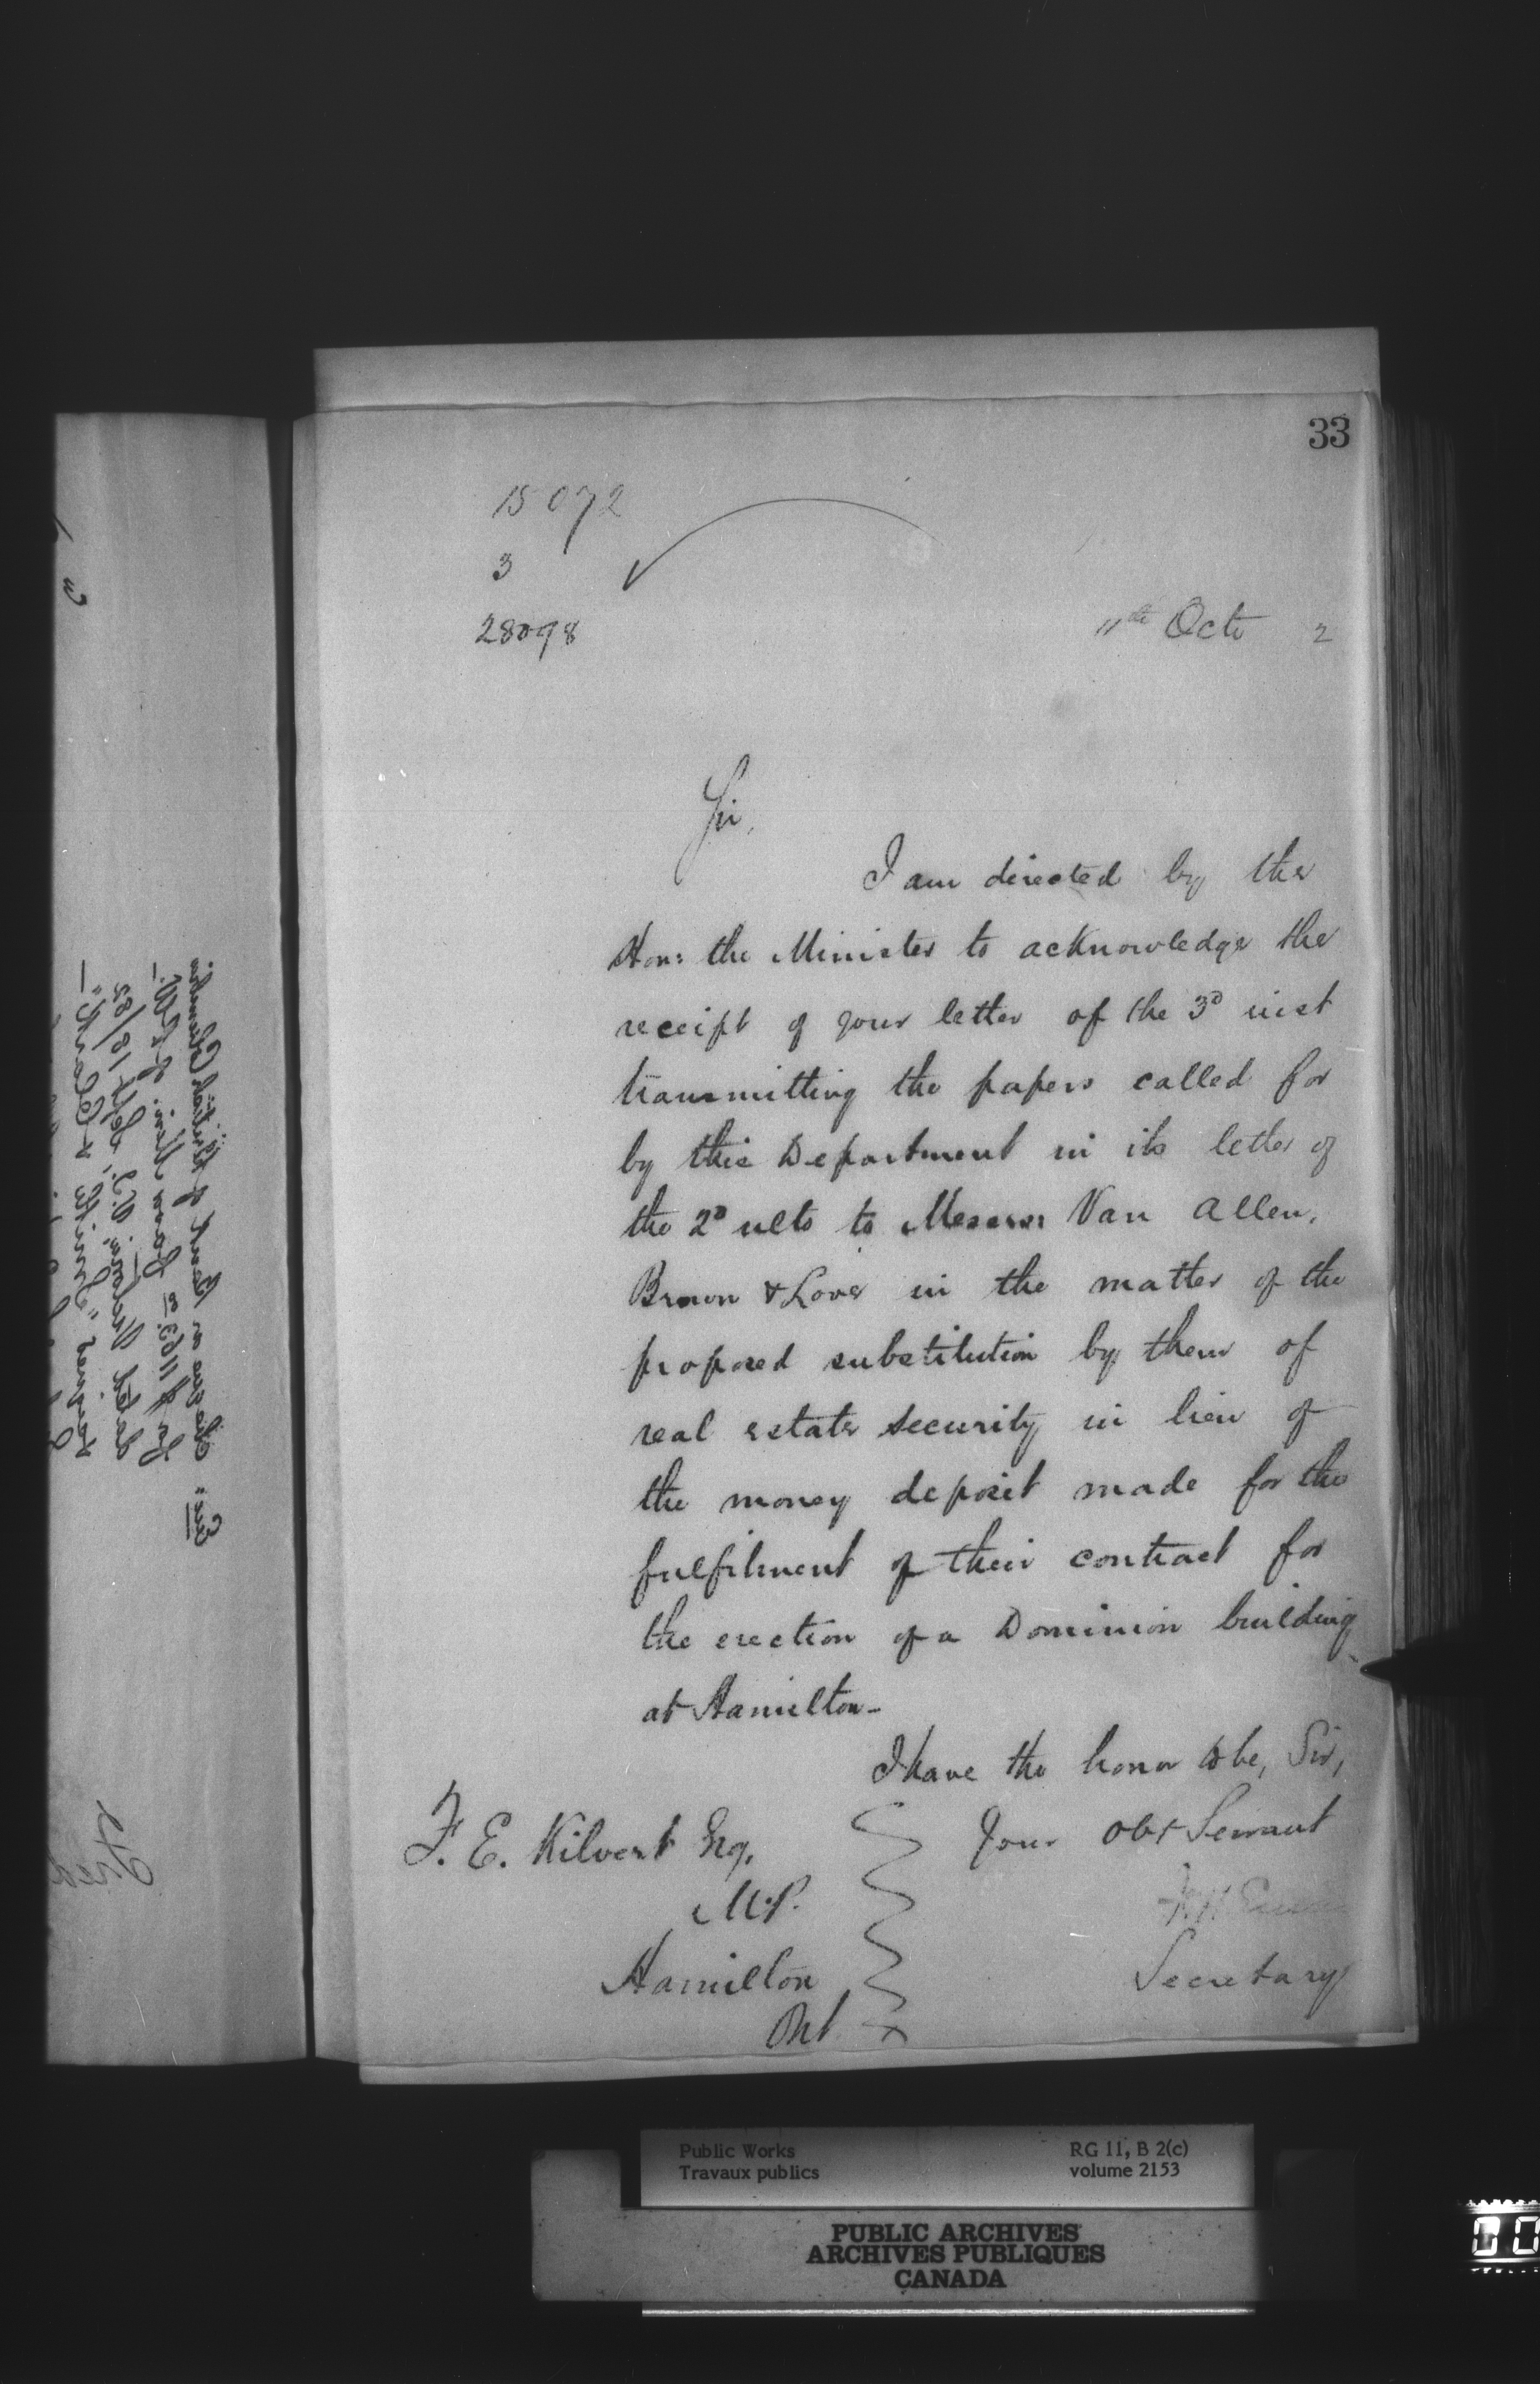 33
15072
3
28098
11th Octr 2
Sir,
I am directed by the
Hon: the Minister to acknowledge the
receipt of your letter of the 3d inst
transmitting the papers called for
by this Department in its letter of
the 2d ulto to Messrs Van Allen,
Brown & Love in the matter of the
proposed substitution by them of
real estate security in lieu of
the money deposit made for the
fulfilment of their contract for
the erection of a Dominion building
at Hamilton-
I have the honor to be, Sir,
Your obt Servant
Secretary
F. E. Kilvert Esq.
M.P.
Hamilton
Ont
Public Works
Travaux publics
RG 11, B 2(c)
volume 2153
PUBLIC ARCHIVES
ARCHIVES PUBLIQUES
CANADA
00